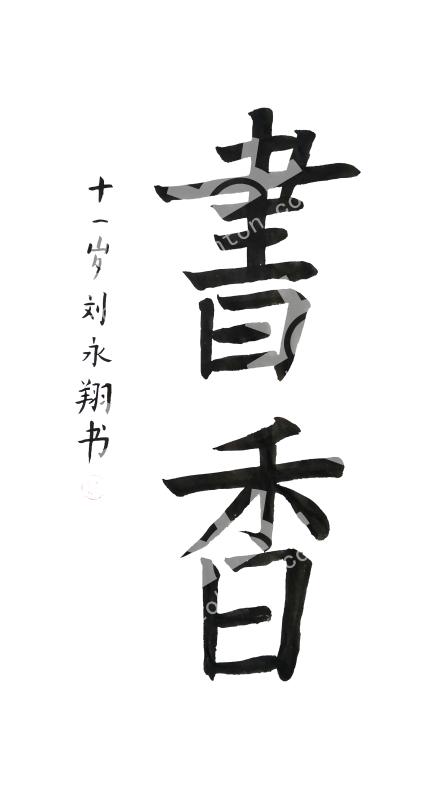 書香
十一岁刘永翔书